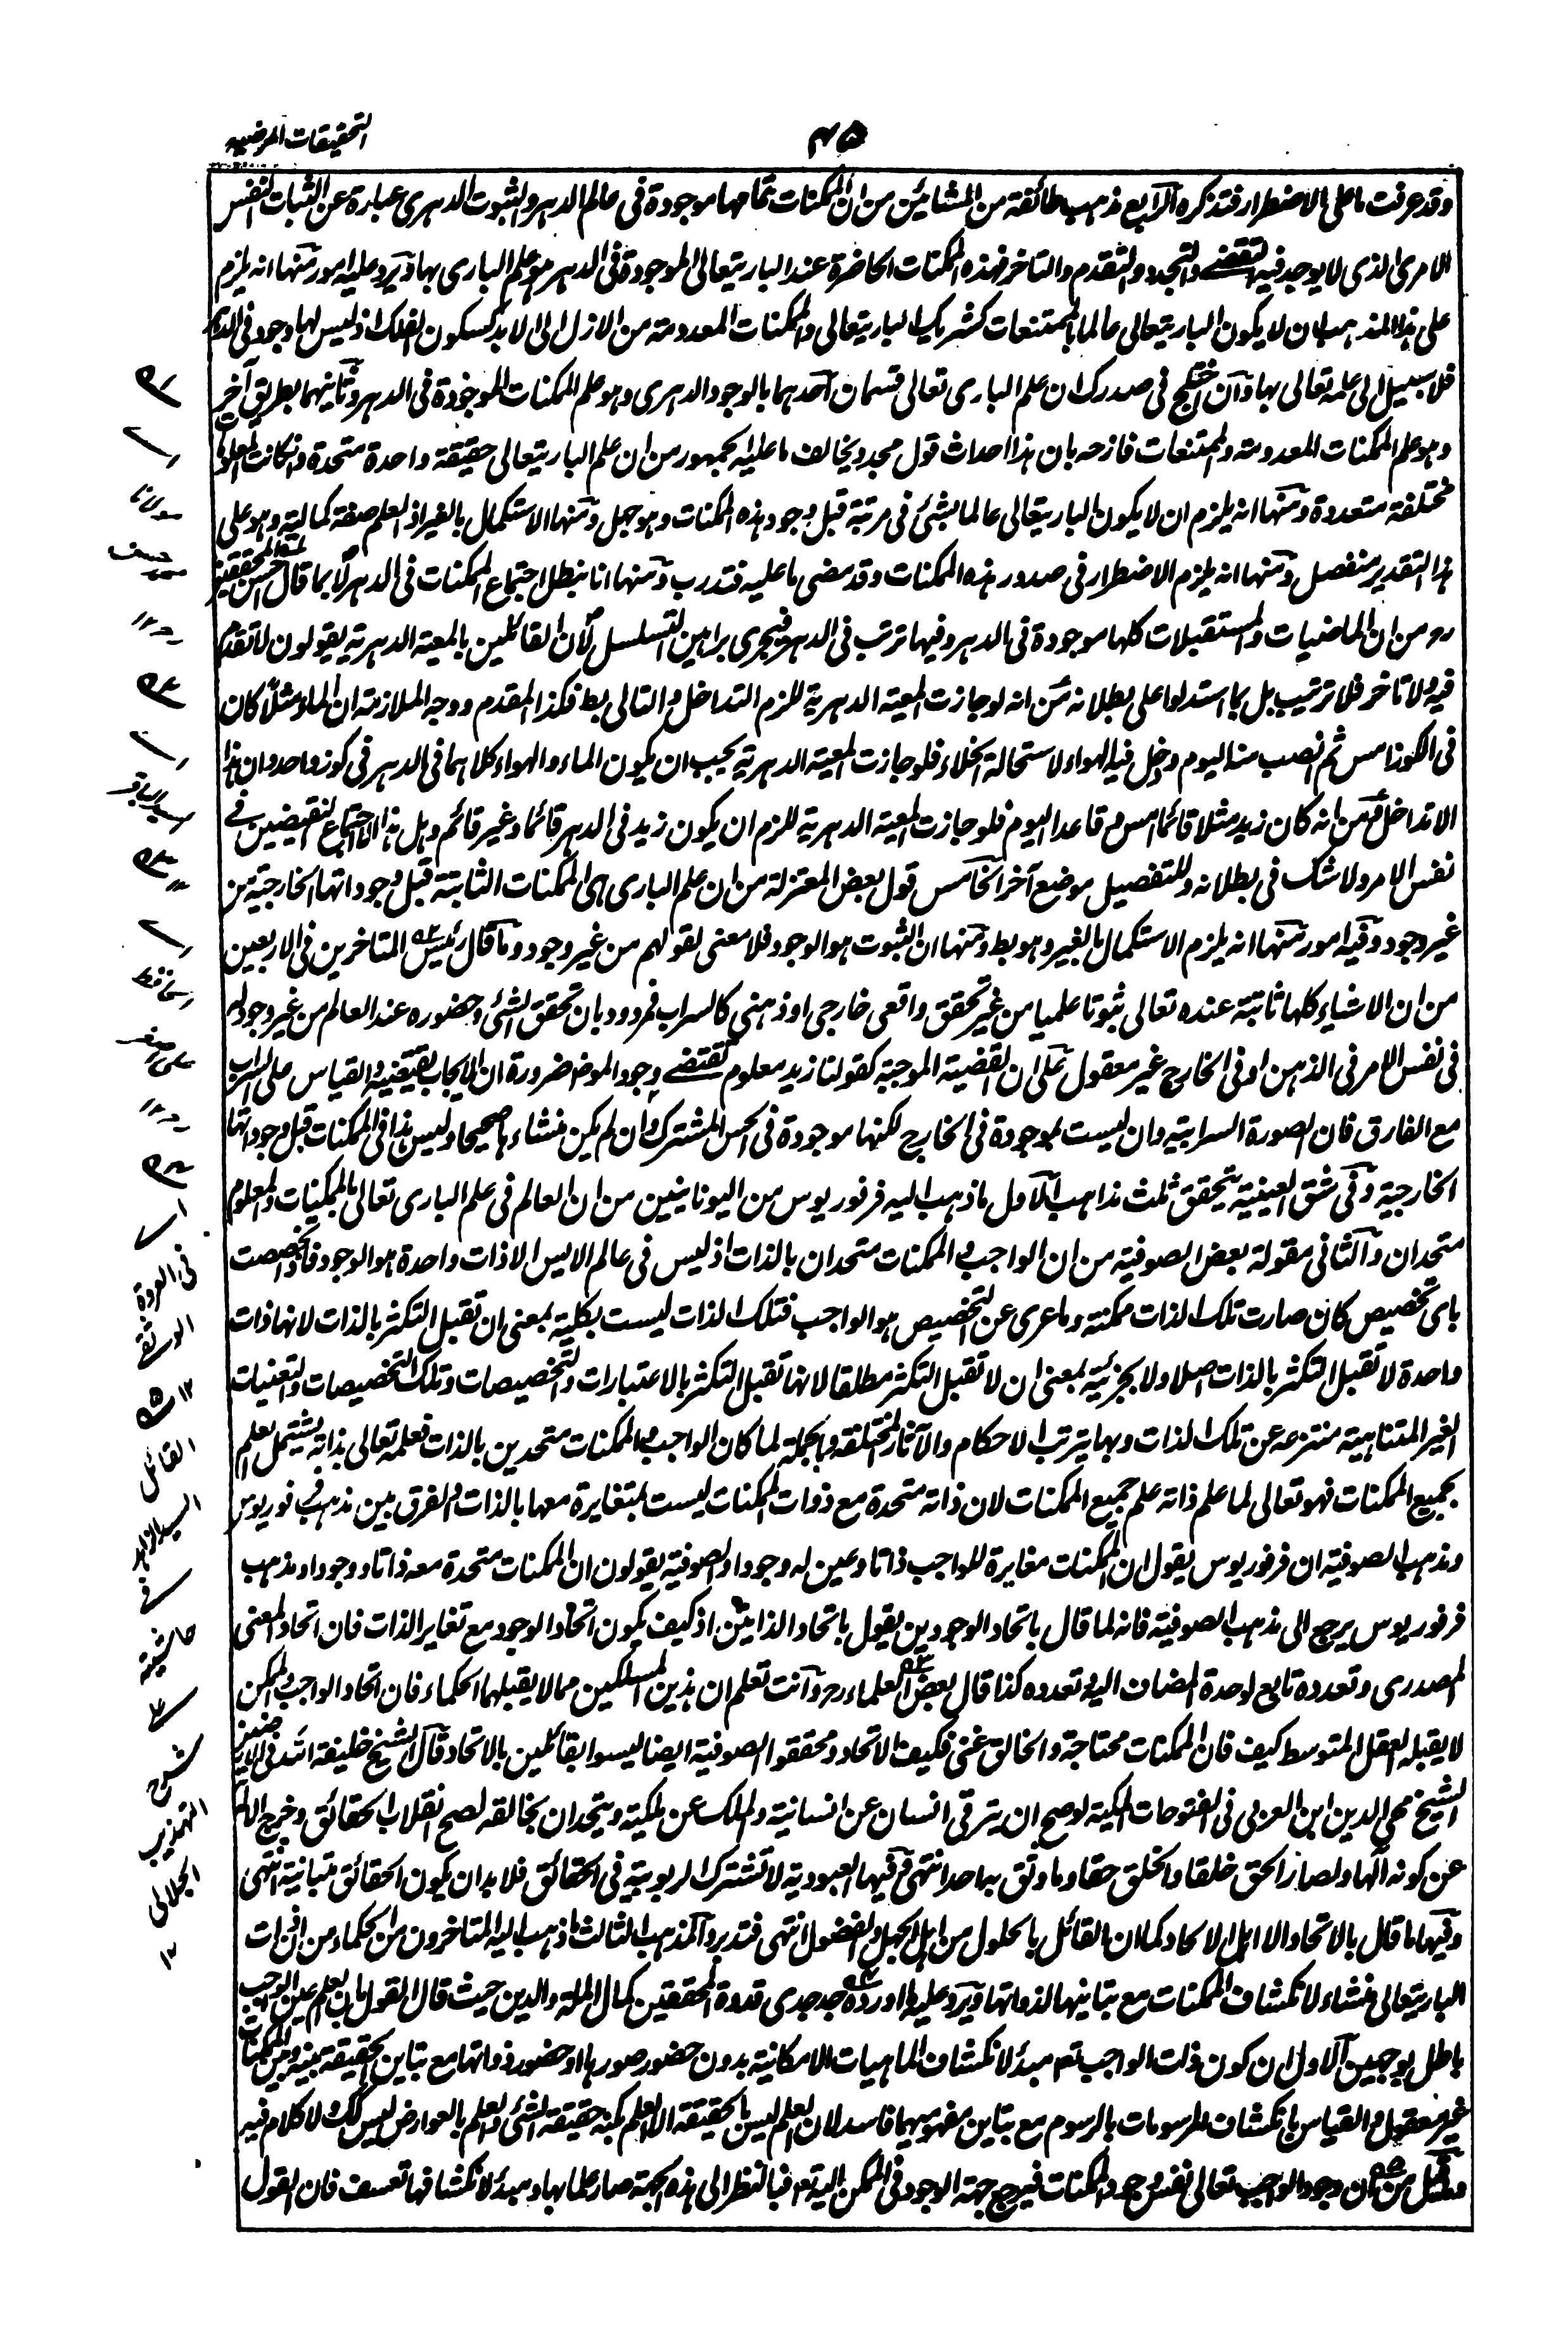 التحقيقات المرضيه
٤٥
وقد عرفت ما على الاضطرار فتذكره الرابع مذهب طائفة من المشائين من ان الممكنات بتمامها موجودة فى عالم الدهر والثبوت الدهرى عبارة عن الثبات النفس
الامرى الذى لا يوجد فيه التقضے والتجدد والتقدم والتاخر فهذه الممكنات الحاضرة عند الباريتعالى الموجودة فى الدهر هو علم البارى بها ويرد عليه امور منها انه يلزم
على هذا المذهب ان لا يكون الباريتعالى عالما بالممتنعات كشريك الباريتعالى والممكنات المعدومة من الازل الى الابد كسكون الفلك اذ ليس لها وجود فى الدهر
فلا سبيل الى علمه تعالى بها وان اختلج فى صدرك ان علم البارى تعالى قسمان احدهما بالوجود الدهرى وهو علم الممكنات الموجودة فى الدهر وثانيهما بطريق آخر
وهو علم الممكنات المعدومة والممتنعات فازحه بان هذا احداث قول مجدد يخالف ما عليه الجمهور من ان علم الباريتعالى حقيقة واحدة متحدة وانكانت المعلومات
مختلفة متعددة ومنها انه يلزم ان لا يكون الباريتعالى عالما بشئ فى مرتبة قبل وجود هذه الممكنات وهو جهل ومنها الاستكمال بالغير اذ العلم صفة كمالية وهو على
هذا التقدير منفصل ومنها انه يلزم الاضطرار فى صدور هذه الممكنات وقد مضى ما عليه فتدرب ومنها انا نبطل اجتماع الممكنات فى الدهر لا بما قال احسن المحققين
رہ من ان الماضيات والمستقبلات كلها موجودة فى الدهر وفيها ترتب فى الدهر فيجرى براهين التسلسل لان القائلين بالمعية الدهرية يقولون لا تقدم
فيه ولا تاخر فلا ترتيب بل بما استدلوا على بطلانه من انه لو جازت المعية الدهرية للزم التداخل والتالى بط فكذا المقدم ووجه الملازمة ان الماء مثلا كان
فى الكوز امس ثم انصب منه اليوم ودخل فيه الهواء لاستحالة الخلاء فلو جازت المعية الدهرية يجب ان يكون الماء والهواء كلاهما فى الدهر فى كوز واحد وان هذا
الا تداخل ومن انه كان زيد مثلا قائما امس وقاعدا اليوم فلو جازت المعية الدهرية للزم ان يكون زيد فى الدهر قائما وغير قائم وهل هذا الا اجتماع النقيضين فے
نفس الامر ولا شك فى بطلانه وللتفصيل موضع آخر الخامس قول بعض المعتزلة من ان علم البارى هى الممكنات الثابتة قبل وجوداتها الخارجية من
غير وجود وفيه امور منها انه يلزم الاستكمال بالغير وهو بط ومنها ان الثبوت هو الوجود فلا معنى لقولهم من غير وجود وما قال رئيس المتاخرين فى الاربعين
من ان الاشياء كلها ثابتة عنده تعالى ثبوتا علميا من غير تحقق واقعى خارجى او ذهنى كالسراب فمردود بان تحقق الشئ وحضوره عند العالم من غير وجود له
فى نفس الامر فى الذهن او فى الخارج غير معقول على ان القضية الموجبة كقولنا زيد معلوم تقتضے وجود الموضوع ضرورة ان الايجاب يقتضيه والقياس على السراب
مع الفارق فان الصورة السرابية وان ليست بموجودة فى الخارج لكنها موجودة فى الحس المشترك وان لم يكن منشاءها صحيحا وليس هذا فى الممكنات قبل وجوداتها
الخارجية وفى شق العينية يتحقق ثلث مذاهب الاول ما ذهب اليه فرفوريوس من اليونانيين من ان العالم فى علم البارى تعالى بالممكنات والمعلوم
متحدان والثانى مقولة بعض الصوفية من ان الواجب والممكنات متحدان بالذات اذ ليس فى عالم الايس الا ذات واحدة هو الوجود فاذا خصصت
باى تخصيص كان صارت تلك الذات ممكنة وما عرى عن التخصيص هو الواجب فتلك الذات ليست بكلية بمعنى ان تقبل التكثر بالذات لانها ذات
واحدة لا تقبل التكثر بالذات اصلا ولا بجزئية بمعنى ان لا تقبل التكثر مطلقا لانها تقبل التكثر بالاعتبارات والتخصيصات وتلك التخصيصات والتعينات
الغير المتناهية منتزعة عن تلك الذات وبها يترتب الاحكام والآثار المختلفة وبالجملة لما كان الواجب والممكنات متحدين بالذات فعلمه تعالى بذاته يشتمل العلم
بجميع الممكنات فهو تعالى لما علم ذاته علم جميع الممكنات لان ذاته متحدة مع ذوات الممكنات ليست بمتغايرة معها بالذات والفرق بين مذهب فرفوريوس
ومذهب الصوفية ان فرفوريوس يقول ان الممكنات مغايرة للواجب ذاتا وعين له وجودا والصوفية يقولون ان الممكنات متحدة معه ذاتا ووجودا ومذهب
فرفوريوس يرجع الى مذهب الصوفية فانه لما قال باتحاد الوجودين يقول باتحاد الذاتين اذ كيف يكون اتحاد الوجود مع تغاير الذات فان اتحاد المعنى
المصدرى وتعدده تابع لوحدة المضاف اليه وتعدده كذا قال بعض العلماء رح وانت تعلم ان هذين المسلكين مما لا يقبلهما الحكماء فان اتحاد الواجب والممكن
لا يقبله العقل المتوسط كيف فان الممكنات محتاجة والخالق غنى فكيف الاتحاد ومحققو الصوفية ايضا ليسوا بقائلين بالاتحاد قال الشيخ خليفة الله فى الارضين
الشيخ محى الدين ابن العربى فى الفتوحات المكية لو صح ان يترقى انسان عن انسانية والملك عن ملكية ويتحد ان بخالقه لصح انقلاب الحقائق وخرج الاله
عن كونه الها ولصار الحق خلقا والخلق حقا وما وثق بها احد انتهى وفيها العبودية لا تشترك الربوبية فى الحقائق فلا بد ان يكون الحقائق متبانية انتهى
وفيها ما قال بالاتحاد الا اهل الالحاد كما ان القائل بالحلول من اهل الجهل والفضول انتهى فتدبر والمذهب الثالث ما ذهب اليه المتاخرون من الحكماء من ان ذات
الباريتعالى منشاء لانكشاف الممكنات مع تباينها لذواتها ويرد عليه ما اورده جد جدى قدوة المحققين كمال الملة والدين حيث قال القول بان العلم عين الواجب
باطل بوجهين الاول ان كون ذات الواجب تعہ مبدءا لانكشاف الماهيات الامكانية بدون حضور صورها او حضور ذواتها مع تباين الحقيقة بينه وبين الممكنات
غير معقول والقياس بانكشاف المرسومات بالرسوم مع تباين مفهوميهما فاسد لان العلم ليس بالحقيقة الا العلم بكنه حقيقة الشئ والعلم بالعوارض ليس كك ولا كلام فيه
وما قيل من ان وجود الواجب تعالى نفس وجود الممكنات فيرجع جهة الوجود فى الممكن اليه تعہ فبالنظر الى هذه الجهة صار عالما بها ومبدءا لانكشافها تعسف فان القول
مولانا
حسن
السيد الباقر
الحافظ
على اصغر
فى العروة
الوثقے
١٢
القائل
السيد الزاهد
فے
حاشية
شرح
التهذيب
الجلالى
١٢